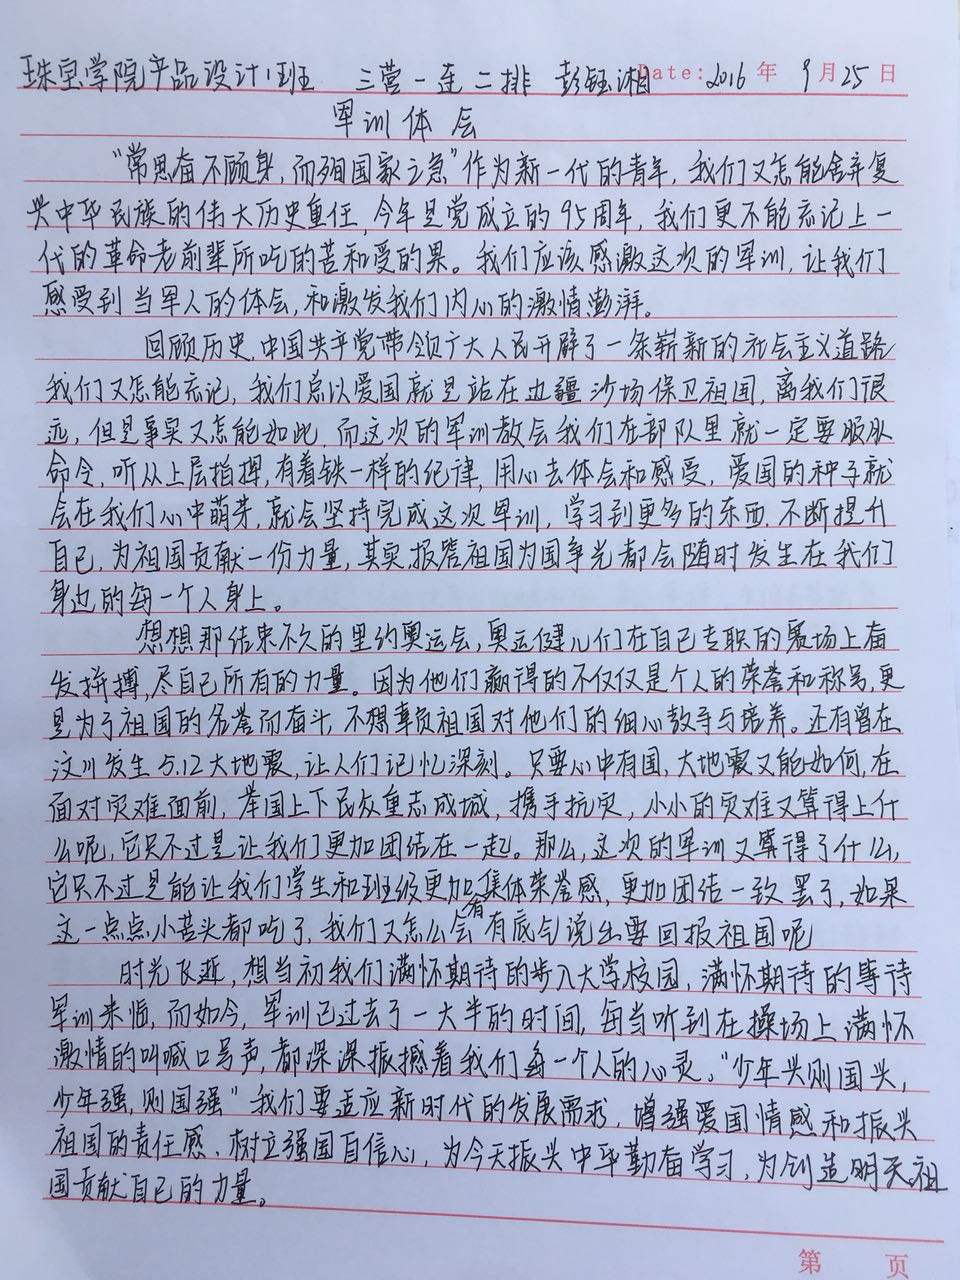 珠宝学院产品设计1班 三营一连二排 彭钰湘 Date: 2016年 9月25日
军训体会
“常思奋不顾身,而殉国家之急”作为新一代的青年,我们又怎能舍弃复
兴中华民族的伟大历史重任,今年是党成立的95周年,我们更不能忘记上一
代的革命老前辈所吃的苦和受的累。我们应该感激这次的军训,让我们
感受到当军人的体会,和激发我们内心的激情澎湃。
回顾历史,中国共产党带领广大人民开辟了一条崭新的社会主义道路
我们又怎能忘记,我们总以爱国就是站在边疆沙场保卫祖国,离我们很
远,但是事实又怎能如此,而这次的军训教会我们在部队里就一定要服从
命令,听从上层指挥,有着铁一样的纪律,用心去体会和感受,爱国的种子就
会在我们心中萌芽,就会坚持完成这次军训,学习到更多的东西,不断提升
自己,为祖国贡献一份力量,其实,报答祖国为国争光都会随时发生在我们
身边的每一个人身上。
想想那结束不久的里约奥运会,奥运健儿们在自己专职的赛场上奋
发拼搏,尽自己所有的力量。因为他们赢得的不仅仅是个人的荣誉和称号,更
是为了祖国的名誉而奋斗,不想辜负祖国对他们的细心教导与培养。还有曾在
汶川发生5.12大地震,让人们记忆深刻。只要心中有国,大地震又能如何,在
面对灾难面前,举国上下民众重志成城,携手抗灾,小小的灾难又算得上什
么呢,它只不过是让我们更加团结在一起。那么,这次的军训又算得了什么,
它只不过是能让我们学生和班级更加有集体荣誉感,更加团结一致罢了,如果
这一点点小苦头都吃了,我们又怎么会有底气说出要回报祖国呢
时光飞逝,想当初我们满怀期待的步入大学校园,满怀期待的等待
军训来临,而如今,军训已过去了一大半的时间,每当听到在操场上满怀
激情的叫喊口号声,都深深振撼着我们每一个人的心灵。“少年兴则国兴,
少年强,则国强”我们要适应新时代的发展需求,增强爱国情感和振兴
祖国的责任感、树立强国自信心,为今天振兴中华勤奋学习,为创造明天祖
国贡献自己的力量。
第 页